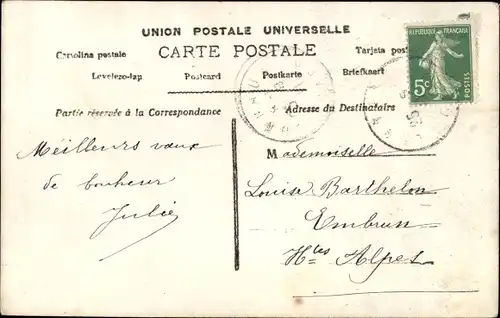 UNION POSTALE UNIVERSELLE
Cartolina postale CARTE POSTALE Tarjeta post
Levelező-lap Postcard Postkarte Briefkaart
RÉPUBLIQUE FRANÇAISE
5c POSTES
Partie réservée à la Correspondance Adresse du Destinataire
Meilleurs vœux
de bonheur
Julie
Mademoiselle
Louise Barthelon
Embrun
Htes Alpes